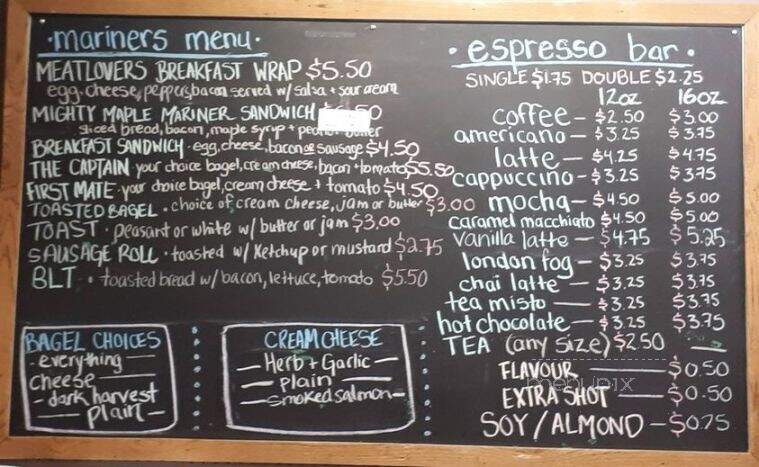 ·mariners menu·
MEATLOVERS BREAKFAST WRAP $5.50
egg, cheese, peppers, bacon served w/ salsa + sour cream
MIGHTY MAPLE MARINER SANDWICH
sliced bread, bacon, maple syrup + peanut butter
BREAKFAST SANDWICH · egg, cheese, bacon or sausage $4.50
THE CAPTAIN · your choice bagel, cream cheese, bacon + tomato $5.50
FIRST MATE · your choice bagel, cream cheese + tomato $4.50
TOASTED BAGEL · choice of cream cheese, jam or butter $3.00
TOAST · peasant or white w/ butter or jam $3.00
SAUSAGE ROLL · toasted w/ Ketchup or mustard $2.75
BLT · toasted bread w/ bacon, lettuce, tomato $5.50
BAGEL CHOICES
- everything -
cheese -
- dark harvest
- plain -
CREAM CHEESE
- Herb + Garlic -
- plain -
- smoked salmon -
· espresso bar ·
SINGLE $1.75 DOUBLE $2.25
12oz 16oz
coffee - $2.50 $3.00
americano - $3.25 $3.75
latte - $4.25 $4.75
cappuccino - $3.25 $3.75
mocha - $4.50 $5.00
caramel macchiato $4.50 $5.00
vanilla latte - $4.75 $5.25
london fog - $3.25 $3.75
chai latte - $3.25 $3.75
tea misto - $3.25 $3.75
hot chocolate - $3.25 $3.75
TEA (any size) $2.50 -
FLAVOUR - $0.50
menupix
EXTRA SHOT - $0.50
SOY / ALMOND - $0.75